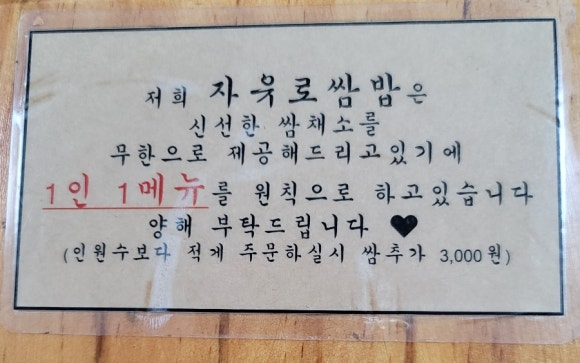 저희 자유로쌈밥은
신선한 쌈채소를
무한으로 제공해드리고있기에
1인 1메뉴를 원칙으로 하고있습니다
양해 부탁드립니다 ♥
(인원수보다 적게 주문하실시 쌈추가 3,000원)